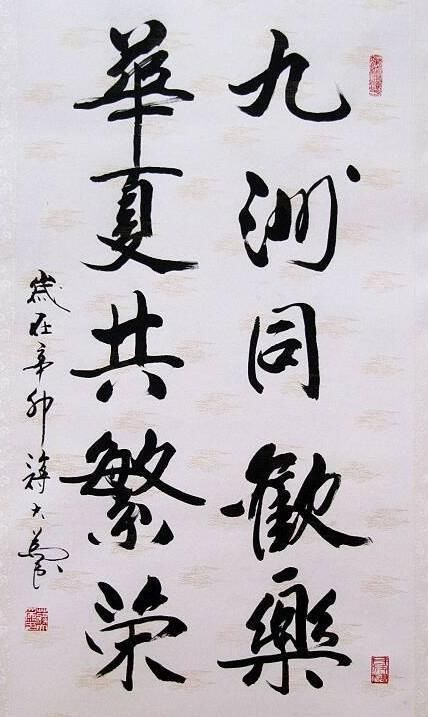 九洲同歡樂
華夏共繁荣
歲在辛卯